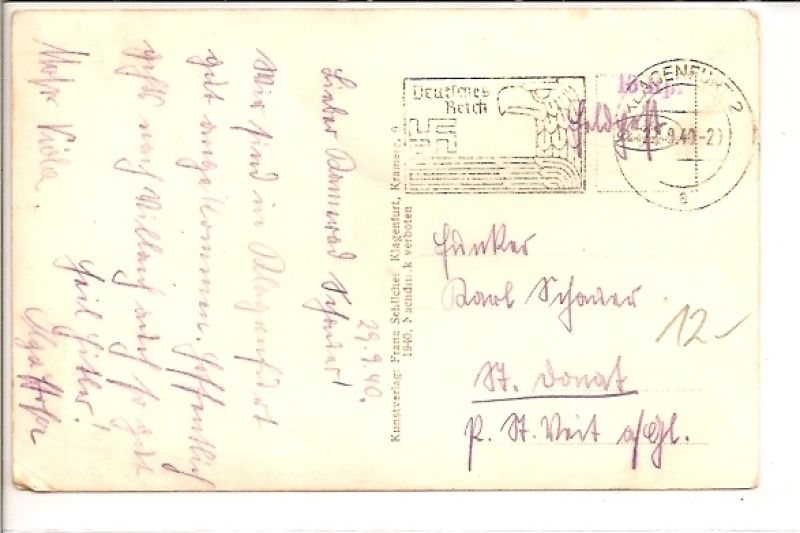 29.9.40.
Lieber Kamerad Schauer!
Wir sind in Klagenfurt
gut angekommen. Hoffentlich
geht's nach Villach auch so gut
Heil Hitler!
Olga Hofer
Kunstverlag: Franz Schilcher, Klagenfurt, Kramerg. 9
1940. Nachdruck verboten
Deutsches
Reich
KLAGENFURT 2
29.9.40-21
a
Feldpost
Funker
Karl Schauer
St. Donat
P. St. Veit a/Gl.
12-